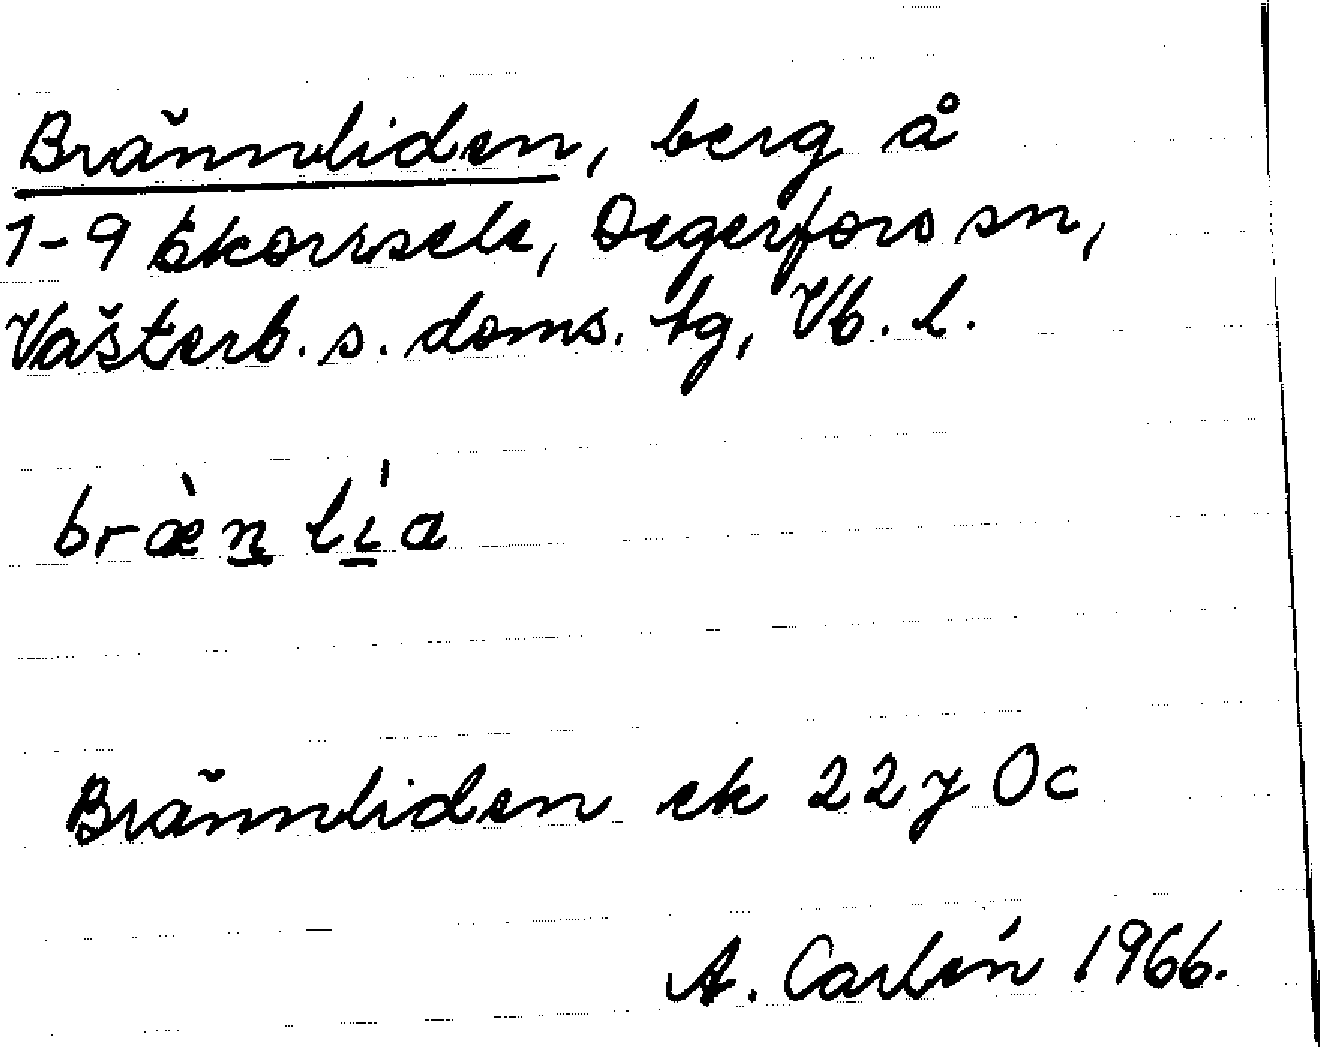 Brännliden, berg å
1-9 Skorrsele, Degerfors sn,
Västerb. s. doms. tg, Vb. l.
bræ̀n̲ lí̲a
Brännliden ek 22y Oc
A. Carlén 1966.